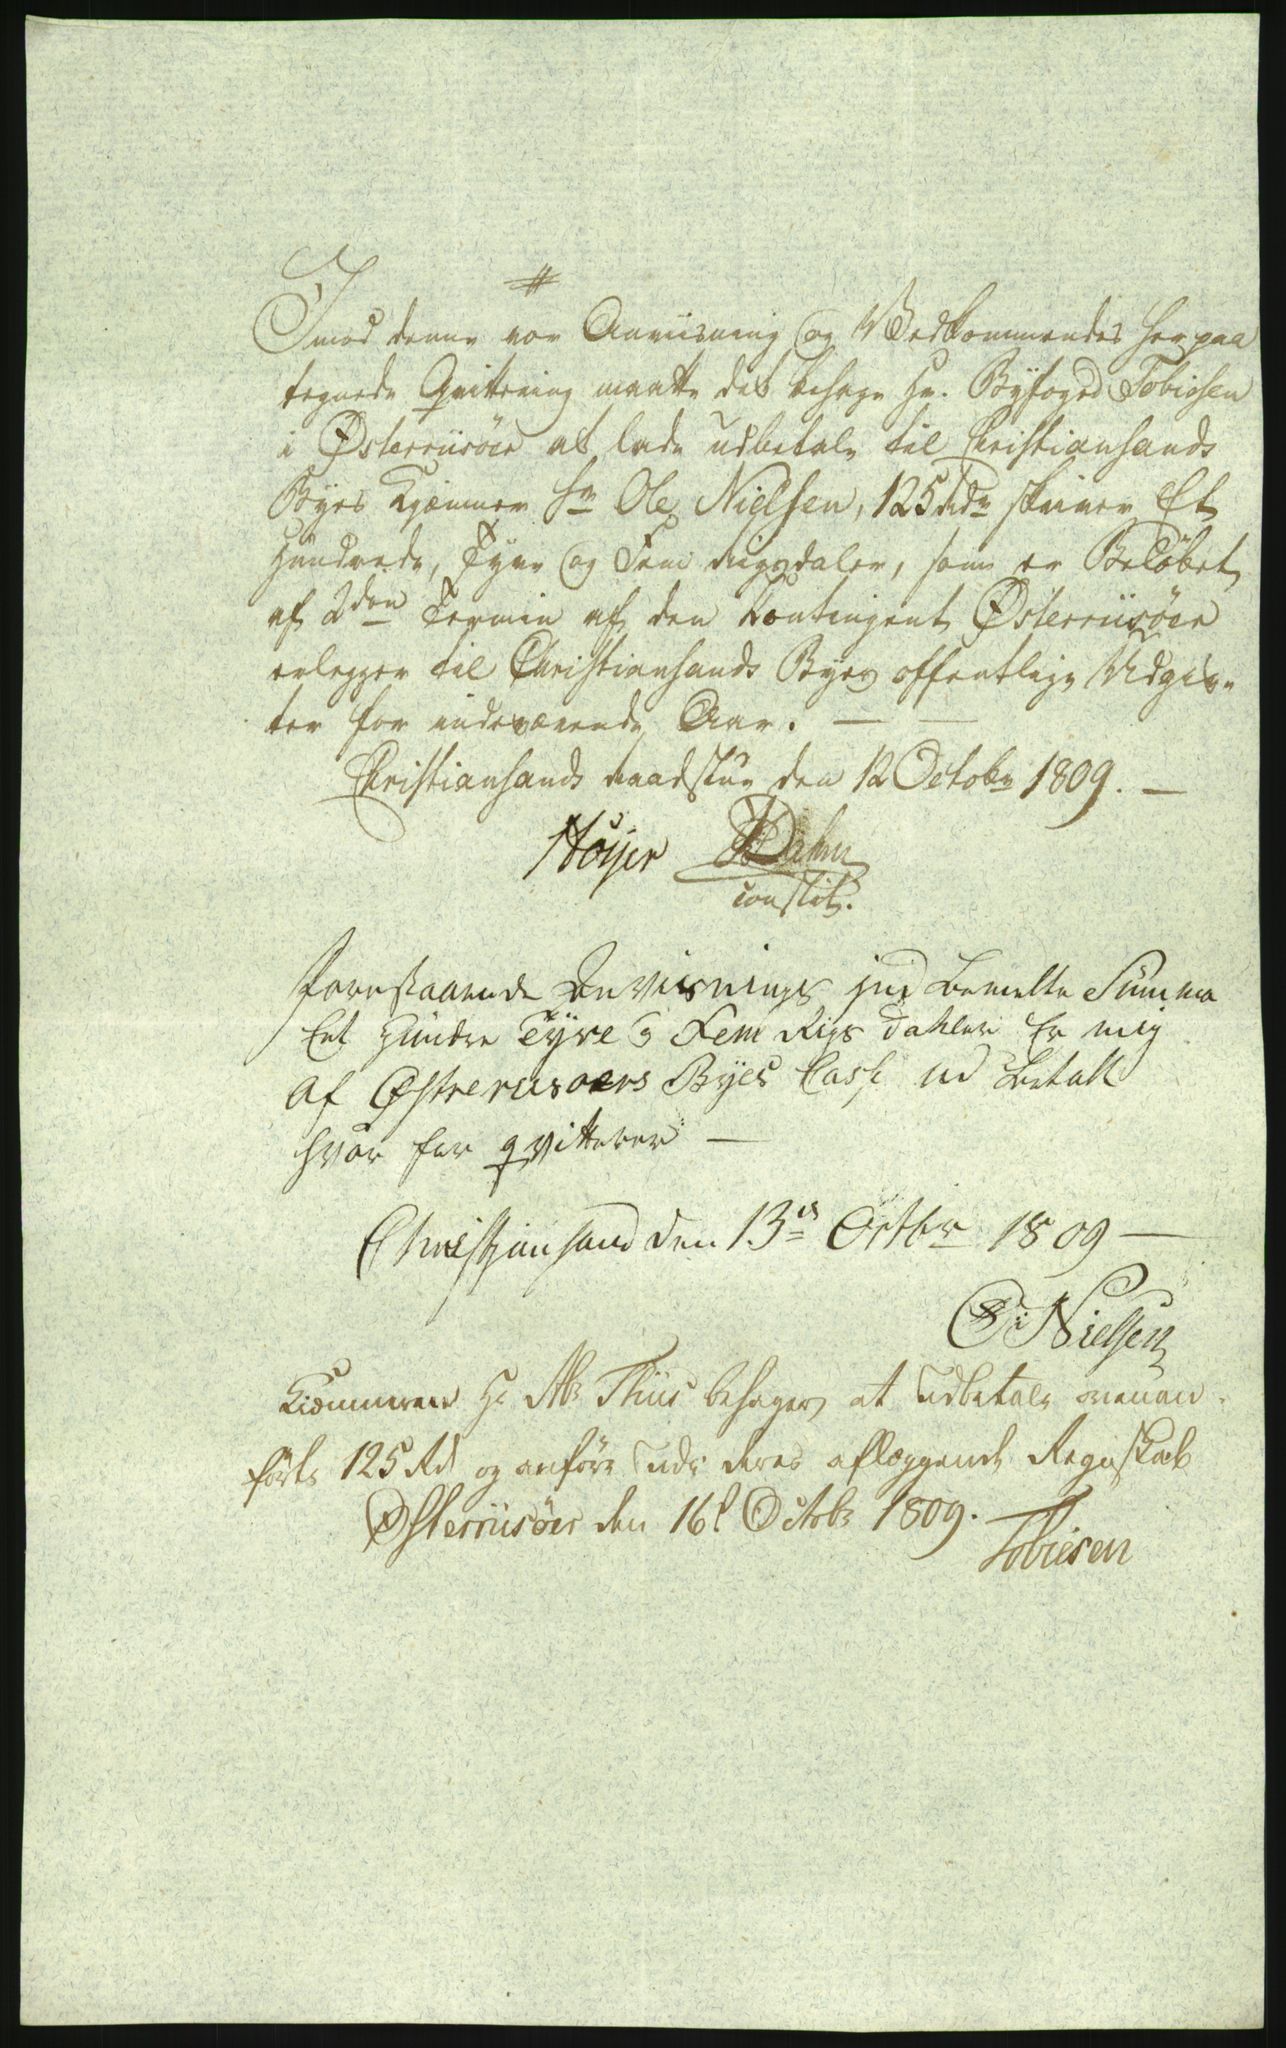 Imod denne vor Anviisning og Vedkommendes her paa
tegnede Qvittering maatte det behage Hr. Byfoged Tobiesen
i Østerriisöer at lade udbetale til Christiansands
Byes Kjæmner Sr Ole Nielsen, 125 Rdr skriver Et
Hundrede, Tyve og Fem Rigsdaler, som er Belöbet
af 2den Termin af den Contingent Østerriisöer
erlegger til Christiansands Byes offentlige Udgiv-
ter for indeværende Aar. — —
Christiansands Raadstue den 12 Octobr 1809. —
Höyer Dahm
constit.
Forestaaende Anvisnings ind bemelte Summa
Eet Hundre Tyve og Fem Rigs Dahler Er mig
af Østrerusoers Byes Casse ud betalt
hvor for qvitterer —
Christiansand den 13de Octbr 1809 —
O: Nielsen
Kiæmneren Hr Ab: Thiis behager at udbetale ovenan-
förte 125 Rd og anföre udi deres aflæggende Regnskab
Østerriisöer den 16d Octobr 1809.
Tobiesen